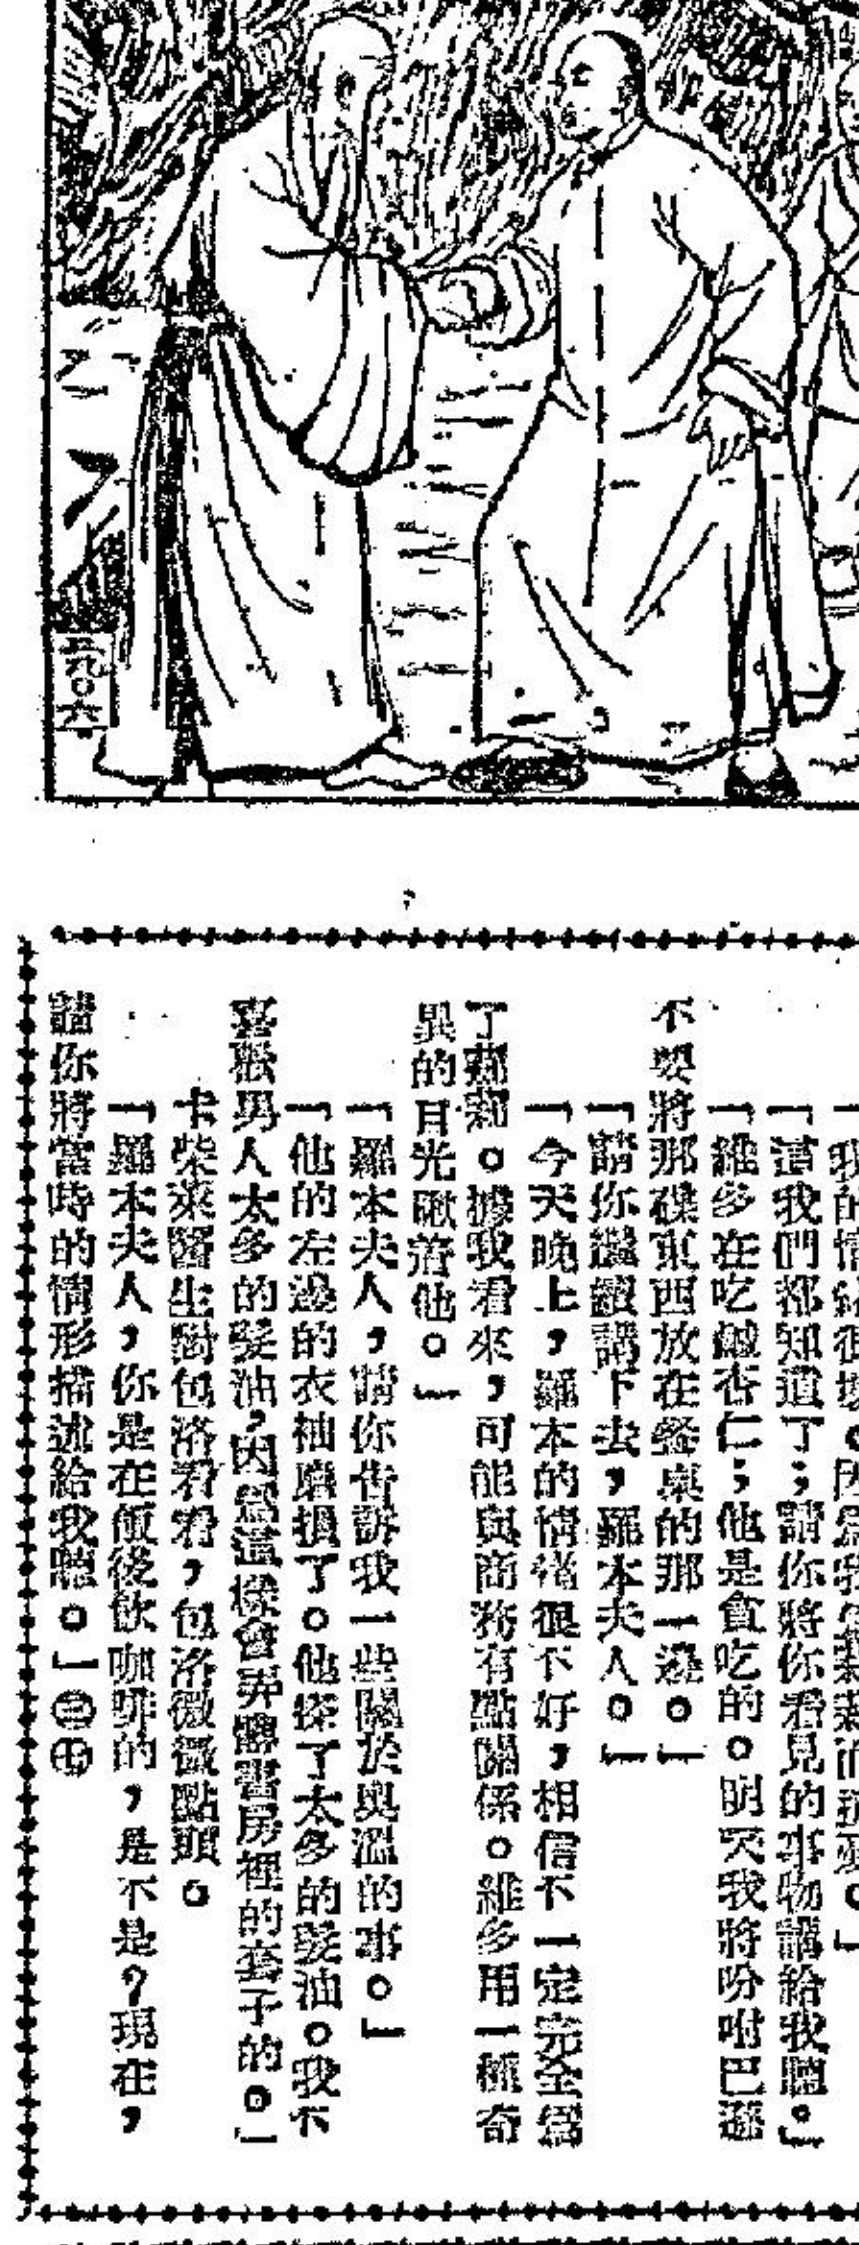 二九〇六
「這我們都知道了；請你將你看見的事物講給我聽。」
「維多在吃鹹杏仁；他是貪吃的。明天我將吩咐巴遜
不要將那碟東西放在餐桌的那一邊。」
「請你繼續講下去，羅本夫人。」
「今天晚上，羅本的情緒很不好，相信不一定完全爲
了莉莉。據我看來，可能與商務有點關係。維多用一種奇
異的目光瞅着他。」
「羅本夫人，請你告訴我一些關於奧溫的事。」
「他的左邊的衣袖磨損了。他搽了太多的髮油。我不
喜歡男人太多的髮油，因爲這樣會弄髒書房裡的套子的。」
卡柴萊醫生對包洛看看，包洛微微點頭。
「羅本夫人，你是在飯後飲咖啡的，是不是？現在，
請你將當時的情形描述給我聽。」㊂㊆